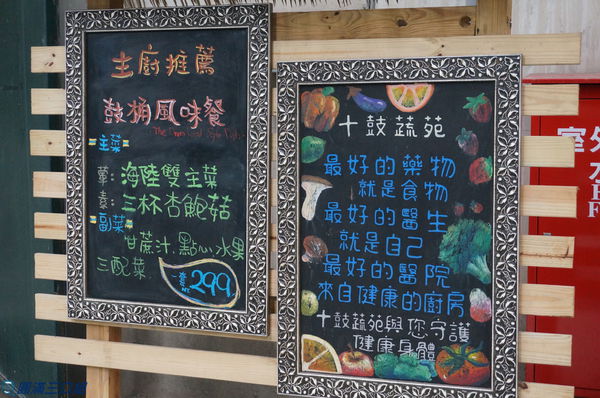 主廚推薦
鼓桶風味餐
主菜
葷：海陸雙主菜
素：三杯杏鮑菇
副菜
甘蔗汁．點心．水果
三配菜
299
十鼓蔬苑
最好的藥物
就是食物
最好的醫生
就是自己
最好的醫院
來自健康的廚房
十鼓蔬苑與您守護
健康身體
室外